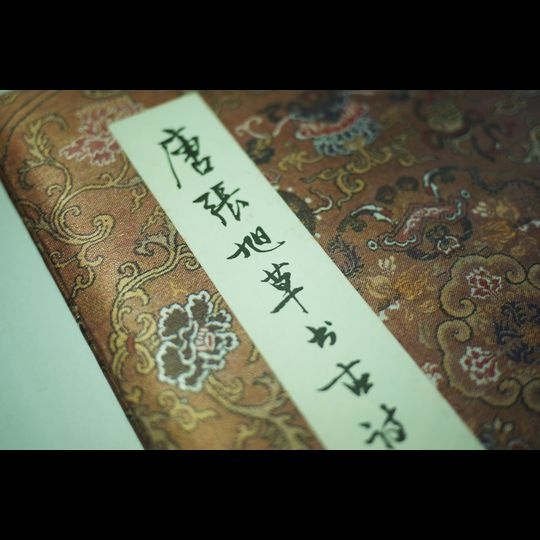 唐張旭草书古詩